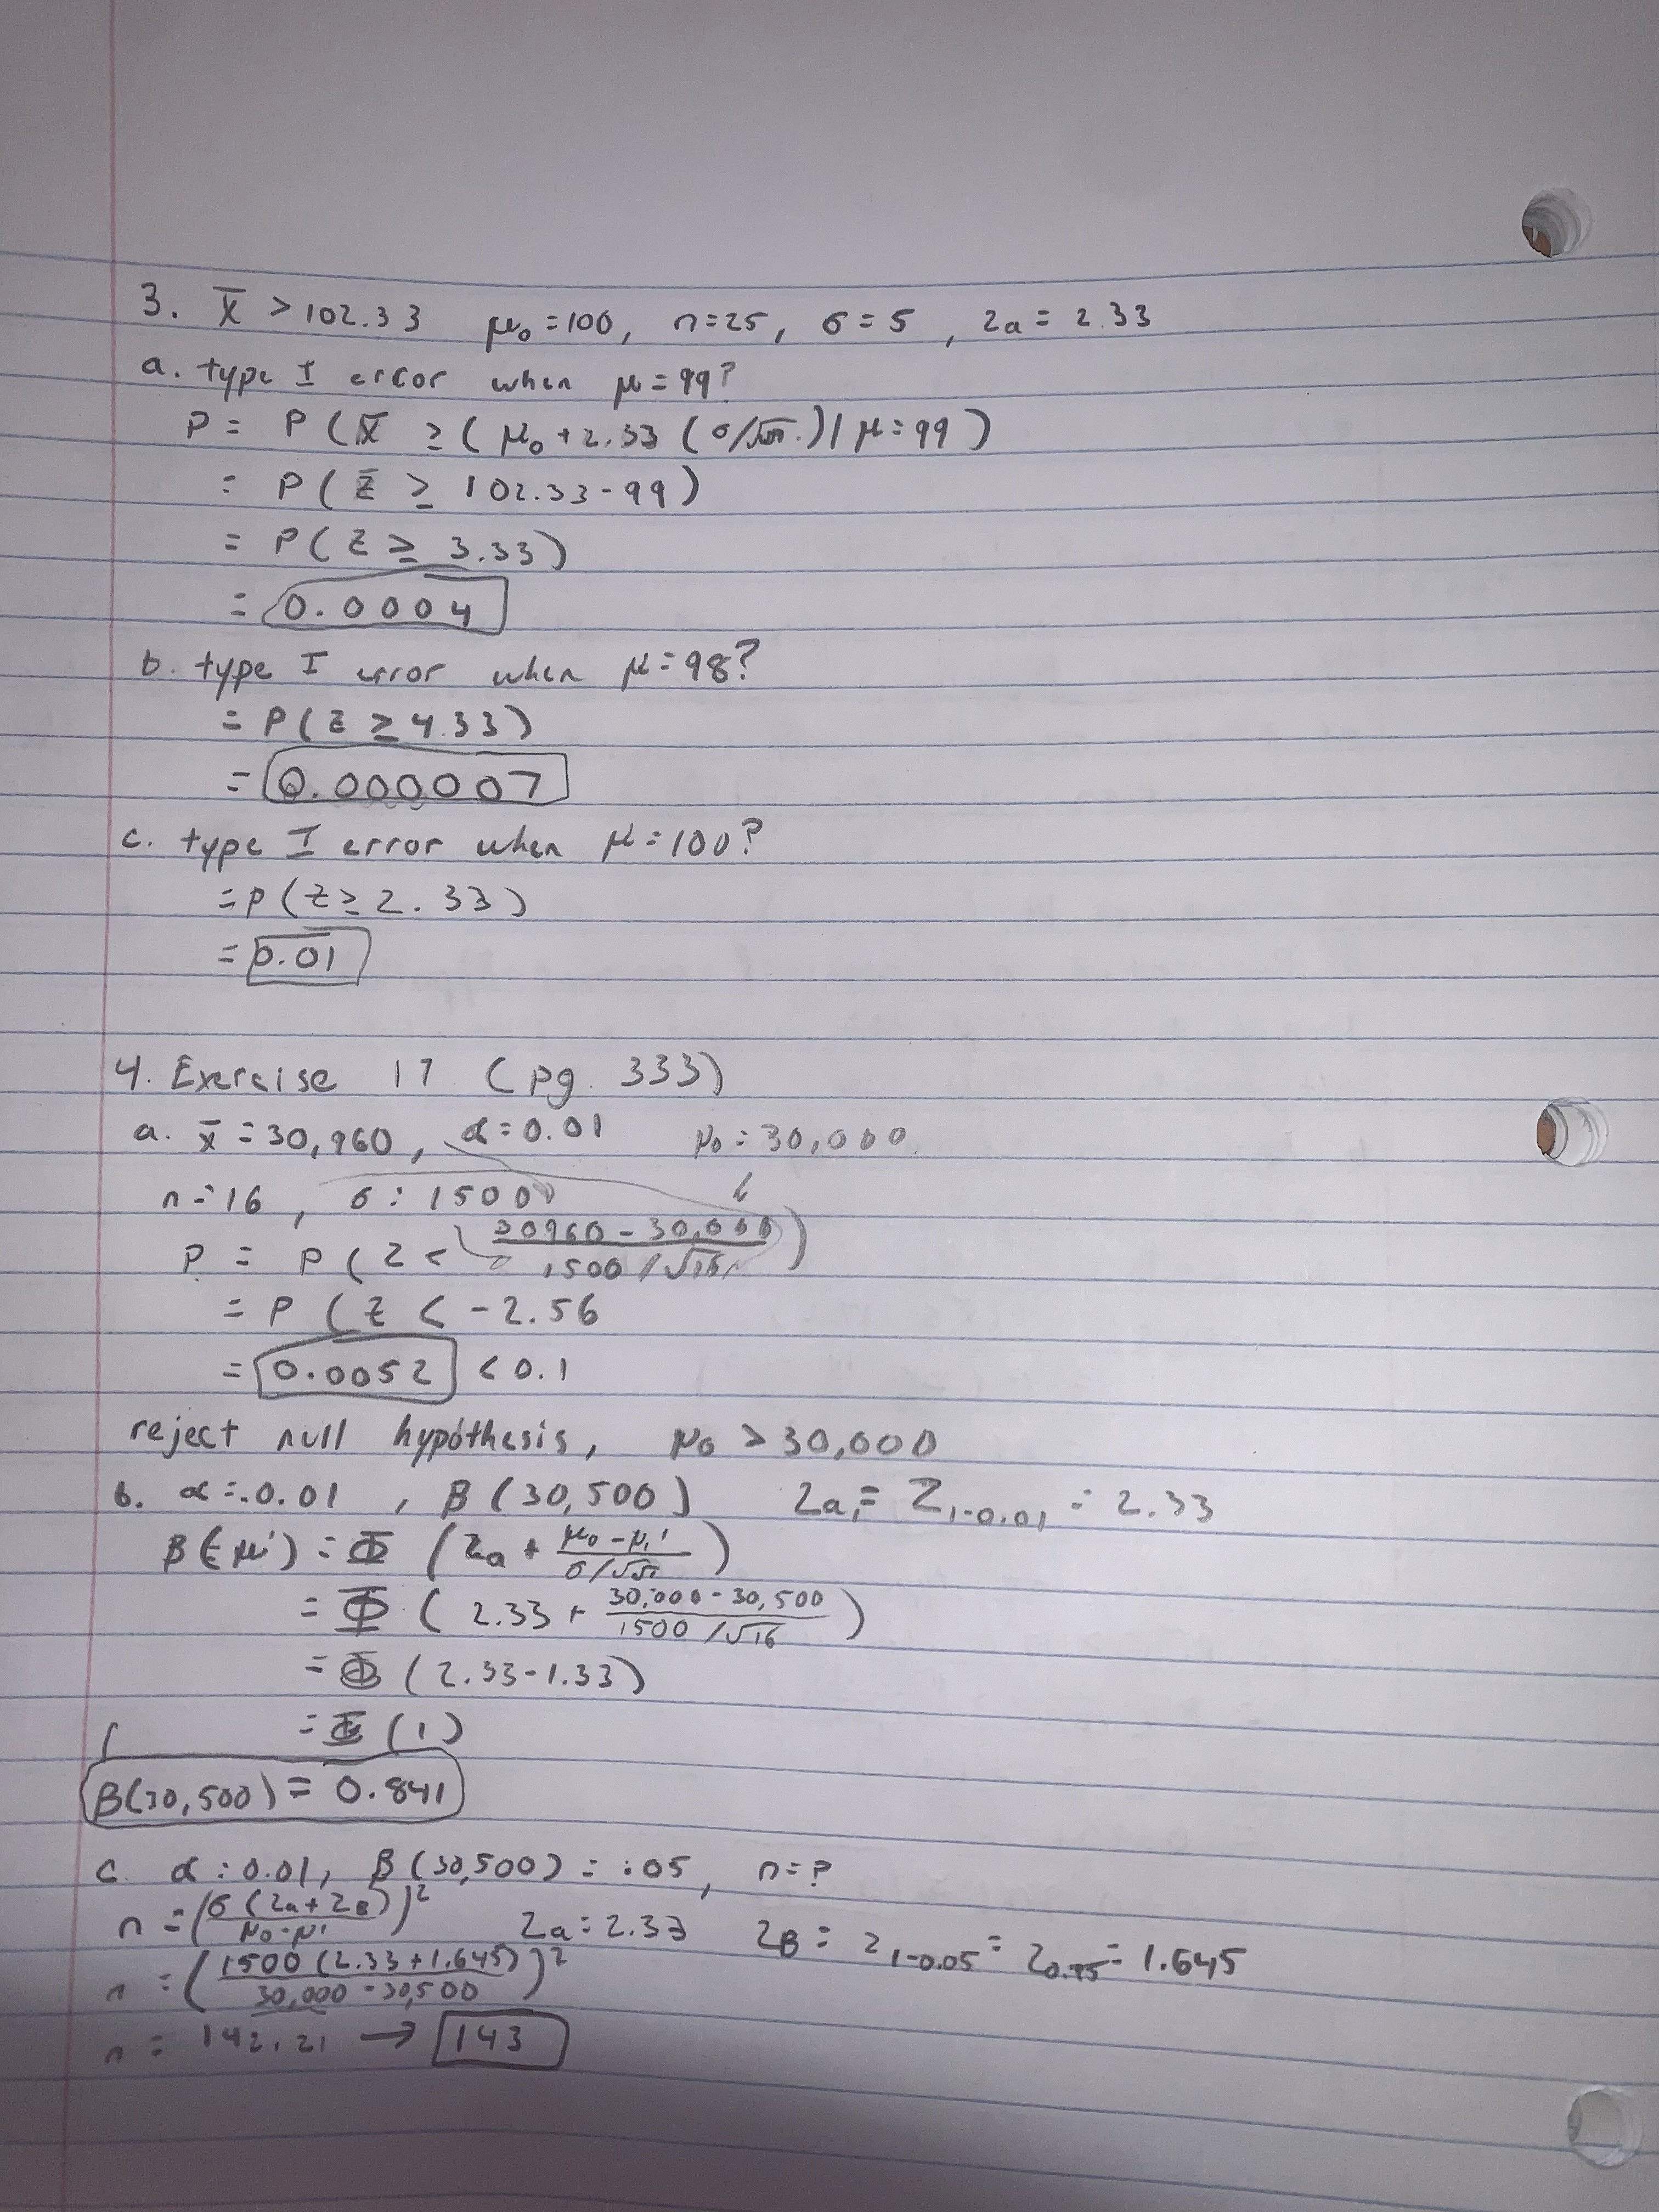 3. X̄ > 102.33 μ₀ = 100, n = 25, σ = 5, Zα = 2.33
a. type I error when μ = 99?
P = P(X̄ ≥ (μ₀ + 2.33 (σ/√n))| μ = 99)
= P(Z̄ ≥ 102.33 - 99)
= P(Z ≥ 3.33)
= 0.0004
b. type I error when μ = 98?
= P(Z ≥ 4.33)
= 0.000007
c. type I error when μ = 100?
= P(Z ≥ 2.33)
= 0.01
4. Exercise 17 (pg. 333)
a. x̄ = 30,960, α = 0.01 μ₀ = 30,000
n = 16, σ = 1500
P = P(Z < (30960 - 30,000)/(1500/√16))
= P(Z < -2.56
= 0.0052 < 0.1
reject null hypothesis, μ₀ > 30,000
b. α = .0.01, β(30,500) Zα = Z₁₋₀.₀₁ = 2.33
β(μ') = Φ(Zα + (μ₀ - μ')/(σ/√n))
= Φ(2.33 + (30,000 - 30,500)/(1500/√16))
= Φ(2.33 - 1.33)
= Φ(1)
β(30,500) = 0.841
c. α = 0.01, β(30,500) = .05, n = ?
n = (σ(Zα + Zβ)/(μ₀ - μ'))² Zα = 2.33 Zβ = Z₁₋₀.₀₅ = Z₀.₉₅ = 1.645
n = (1500(2.33 + 1.645)/(30,000 - 30,500))²
n = 142.21 → 143